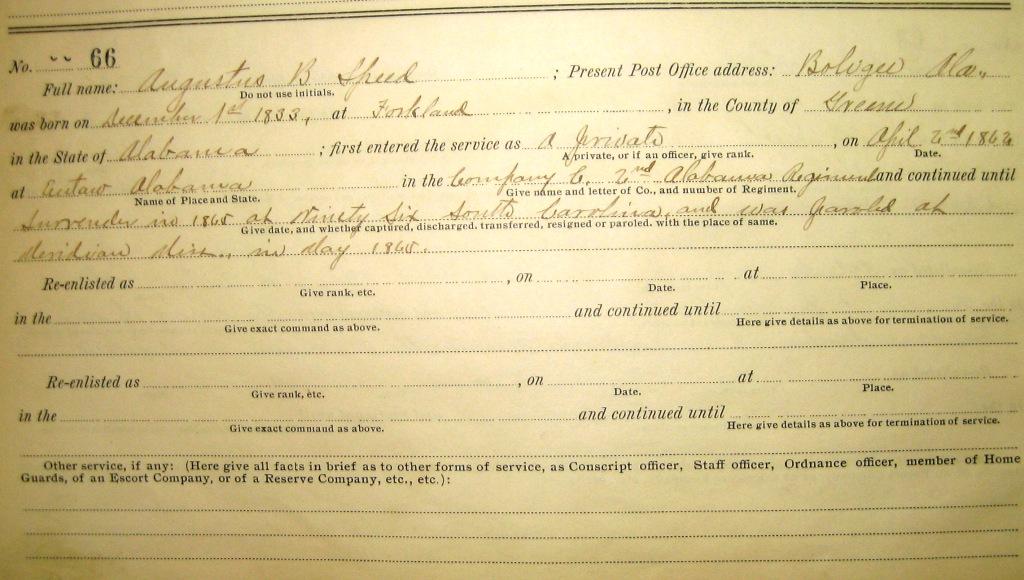 No. 66
Full name: Augustus B Speed ; Present Post Office address: Boligee Ala.
Do not use initials.
was born on December 1st 1833, at Forkland , in the County of Greene
in the State of Alabama ; first entered the service as A Private , on April 2nd 1862
A private, or if an officer, give rank. Date.
at Eutaw Alabama in the Company C, 2nd Alabama Regiment and continued until
Name of Place and State. Give name and letter of Co., and number of Regiment.
Surrender in 1865 at Ninety Six South Carolina, and was Paroled at
Give date, and whether captured, discharged, transferred, resigned or paroled, with the place of same.
Meridian Miss., in May 1865.
Re-enlisted as , on at
Give rank, etc. Date. Place.
in the and continued until
Give exact command as above. Here give details as above for termination of service.
Re-enlisted as , on at
Give rank, etc. Date. Place.
in the and continued until
Give exact command as above. Here give details as above for termination of service.
Other service, if any: (Here give all facts in brief as to other forms of service, as Conscript officer, Staff officer, Ordnance officer, member of Home
Guards, of an Escort Company, or of a Reserve Company, etc., etc.):